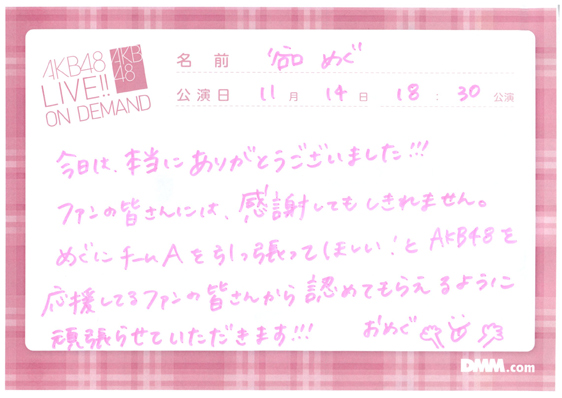 AKB48
LIVE!!
ON DEMAND
AKB
48
名前 谷口 めぐ
公演日 11月 14日 18:30 公演
今日は、本当にありがとうございました!!!
ファンの皆さんには、感謝してもしきれません。
めぐにチームAを引っ張ってほしい!とAKB48を
応援してるファンの皆さんから認めてもらえるように
頑張らせていただきます!!!
おめぐ
DMM.com